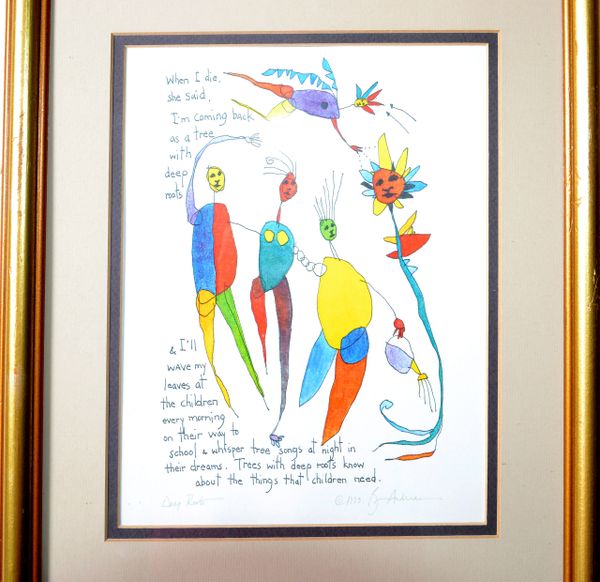 When I die,
she said,
I'm coming back
as a tree
with
deep
roots
& I'll
wave my
leaves at
the children
every morning
on their way to
school & whisper tree songs at night in
their dreams. Trees with deep roots know
about the things that children need.
Deep Roots